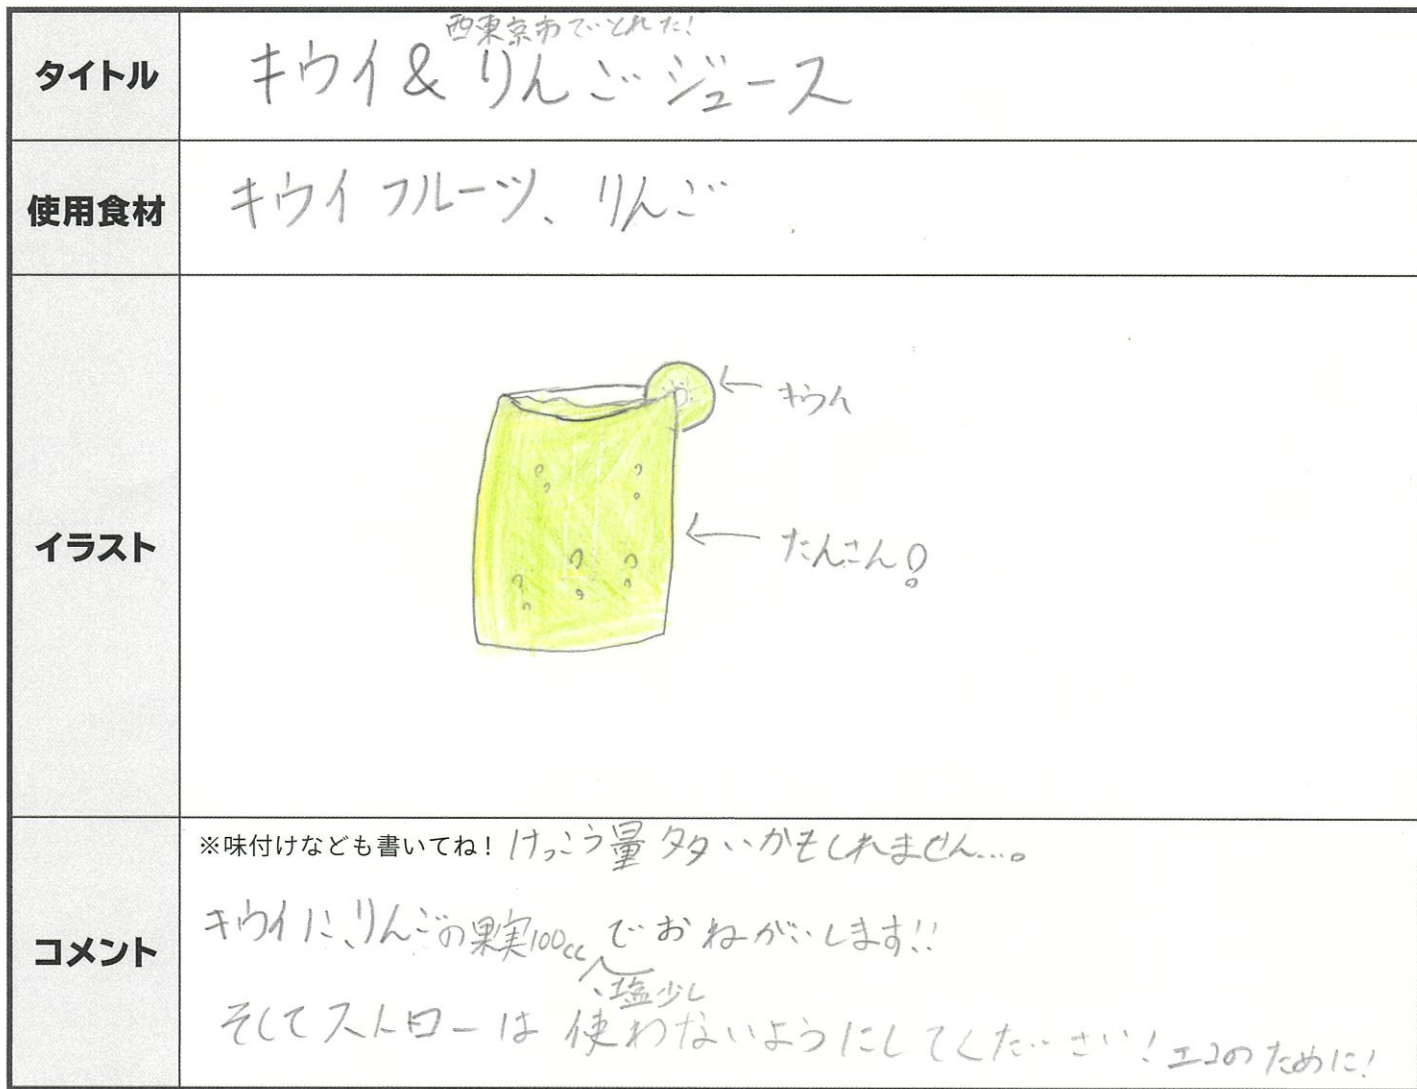 タイトル
西東京市でとれた!
キウイ&りんごジュース
使用食材
キウイフルーツ、りんご
イラスト
←キウイ
←たんさん!
コメント
※味付けなども書いてね! けっこう量多いかもしれません…。
キウイに、りんごの果実100ccでおねがいします!!
、塩少し
そしてストローは使わないようにしてください!エコのために!